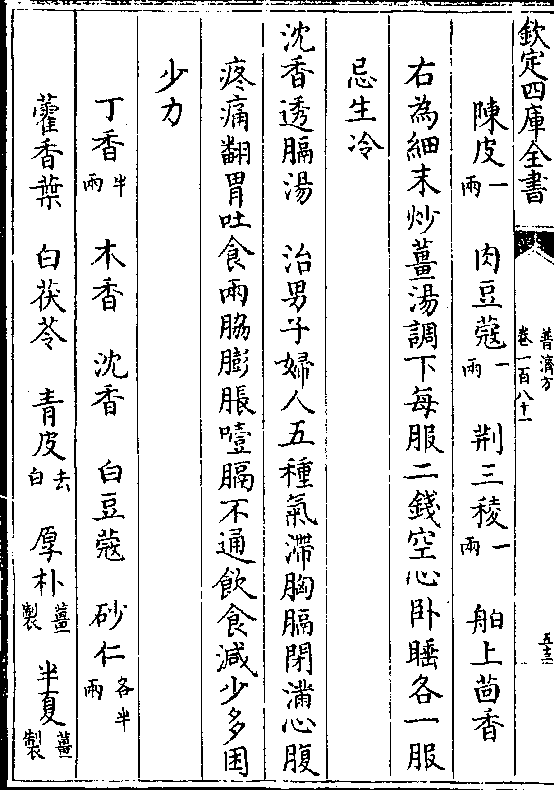 欽定四庫全書
普濟方
卷一百八十一
五十三
陳皮一兩　肉豆蔻一兩　荆三稜一兩　舶上茴香
右為細末炒薑湯調下每服二錢空心卧睡各一服
忌生冷
沈香透膈湯　治男子婦人五種氣滯胸膈閉滿心腹
疼痛翻胃吐食兩脇膨脹噎膈不通飲食減少多困
少力
丁香半兩　木香　沈香　白豆蔻　砂仁各半兩
藿香葉　白茯苓　青皮去白　厚朴薑製　半夏薑製